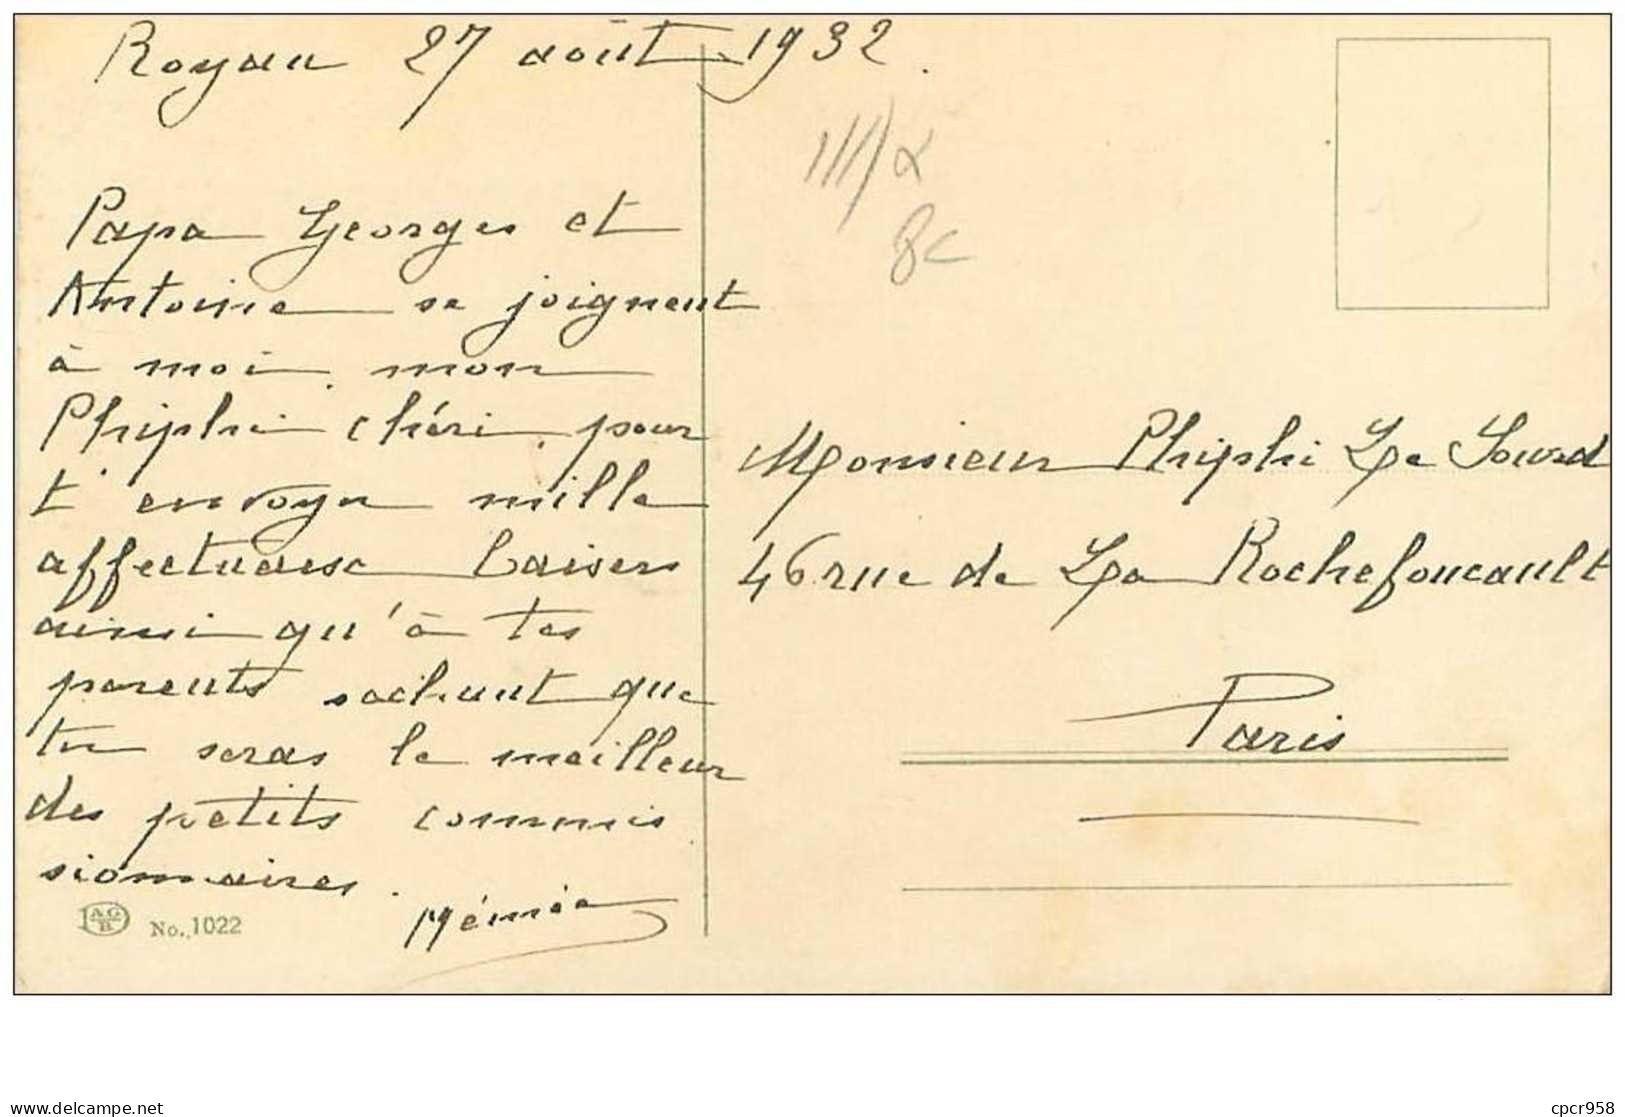 Royan 27 août 1932.
Papa Georges et
Antoine se joignent
à moi, mon
Phiphi chéri, pour
t'envoyer mille
affectueux baisers
ainsi qu'à tes
parents sachant que
tu seras le meilleur
des petits commis
sionnaires.
Mémée
AGB
No. 1022
III/α
8c
Monsieur Phiphi Le Sourd
46 rue de La Rochefoucault
Paris
cpcr958